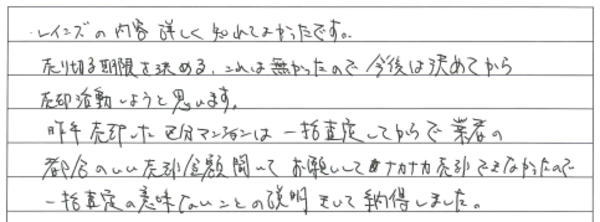 レインズの内容 詳しく知れてよかったです。
売り切る期限を決める、これは無かったので今後は決めてから
売却活動しようと思います。
昨年売却した区分マンションは一括査定してからで業者の
都合のいい売却金額聞いてお願いしてもナカナカ売却できなかったので
一括査定の意味ないことの説明きいて納得しました。